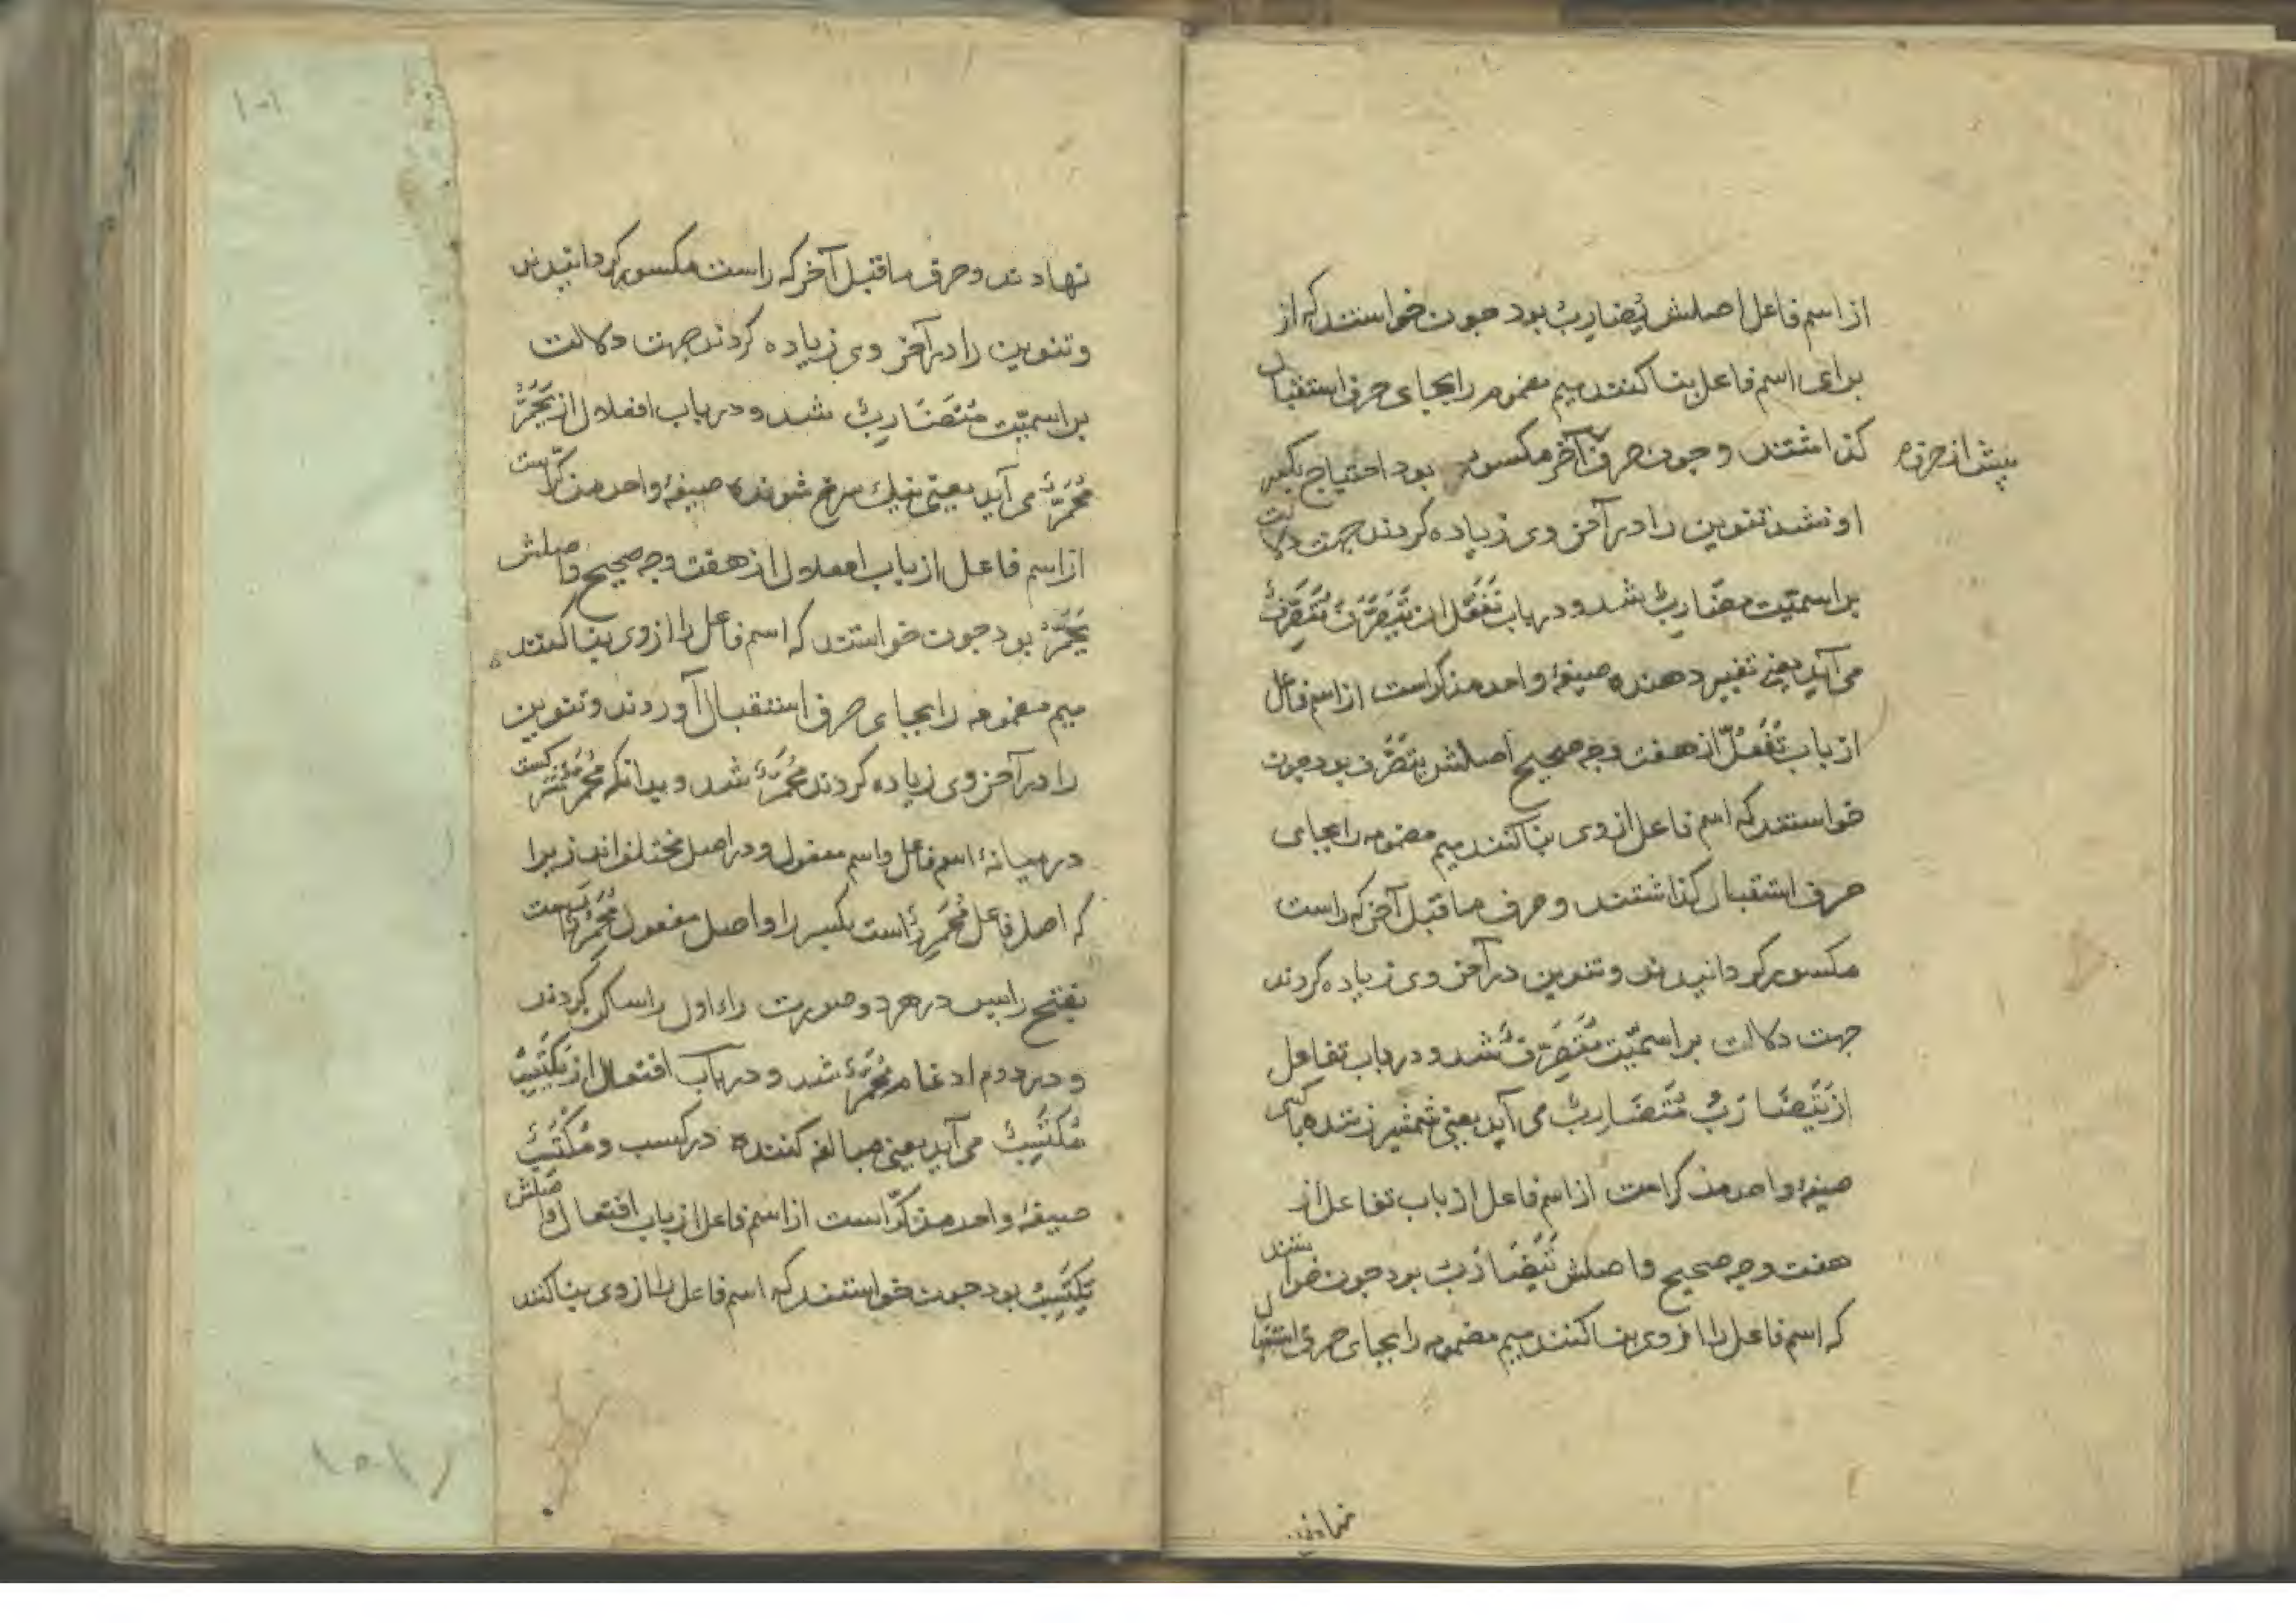 از اسم فاعل اصلش یُضَارِبُ بود جون خواستند که از
برای اسم فاعل بنا کنند میم مضموم را بجای حرف استقبال
کذاشتند و جون حرف آخر مکسور بود احتیاج بکسر
پیش از حرف
او نشد تنوین را در آخر وی زیاده کردند جهت دلالت
بر اسمیّت مضَارِبٌ شد و در باب تَفَعُّل از یَتَصَرَّفُ مُتَصَرِّفٌ
می آید یعنی تغییر دهنده صیغهٔ واحد مذکر است از اسم فاعل
از باب تَفَعُّل از هفت وجه صحیح اصلش یتَصَرَّف بود جون
خواستند که اسم فاعل از وی بنا کنند میم مضمومه را بجای
حرف استقبال کذاشتند و حرف ما قبل آخر که راست
مکسور کردانیدند و تنوین در آخر وی زیاده کردند
جهت دلالت بر اسمیّت مُتَصَرِّفٌ شد و در باب تفاعل
از یَتَضَارَبُ مُتَضَارِبٌ می آید یعنی شمشیر زننده با کسی
صیغهٔ واحد مذکر است از اسم فاعل از باب تفاعل از
هفت وجه صحیح و اصلش یَتَضَارَبُ بود جون خواستند
که اسم فاعل را از وی بنا کنند میم مضمومه را بجای حرف استقبال
نهادند
نهادند و حرف ما قبل آخر که راست مکسور کردانیدند
و تنوین را در آخر وی زیاده کردند جهت دلالت
بر اسمیّت مُتَضَارِبٌ شد و در باب افعلال از یَحْمَرُّ
مُحْمَرٌّ می آید یعنی نیك سرخ شونده صیغهٔ واحد مذکّر است
از اسم فاعل از باب افعلال از هفت وجه صحیح و اصلش
یَحْمَرُّ بود جون خواستند که اسم فاعل را از وی بنا کنند
میم مضمومه را بجای حرف استقبال آوردند و تنوین
را در آخر وی زیاده کردند مُحْمَرٌّ شد و بدانکه مُحْمَرٌّ مشترکست
در میانهٔ اسم فاعل و اسم مفعول و در اصل مختلف اند زیرا
که اصل فاعل مُحْمَرِرٌ است بکسر را و اصل مفعول مُحْمَرَرٌ است
بفتح را پس در هر دو صورت راء اول را ساکن کردند
و در دوم ادغام مُحْمَرٌّ شد و در باب افتعال از یَکْتَسِبُ
مُکْتَسِبٌ می آید یعنی مبالغه کننده در کسب و مُکْتَسِبٌ
صیغهٔ واحد مذکّر است از اسم فاعل از باب افتعال و اصلش
یَکْتَسِبُ بود جون خواستند که اسم فاعل را از وی بنا کنند
۱۰۱
۱۰۱